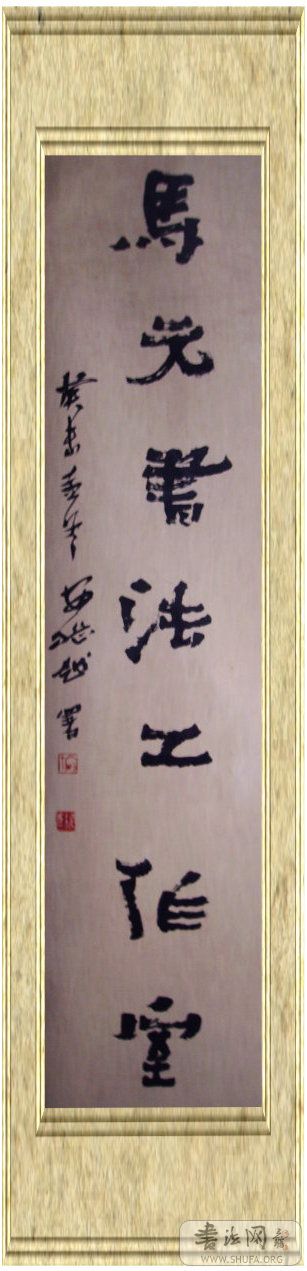 馬元書法工作室
癸未
書法网
WWW.SHUFA.ORG